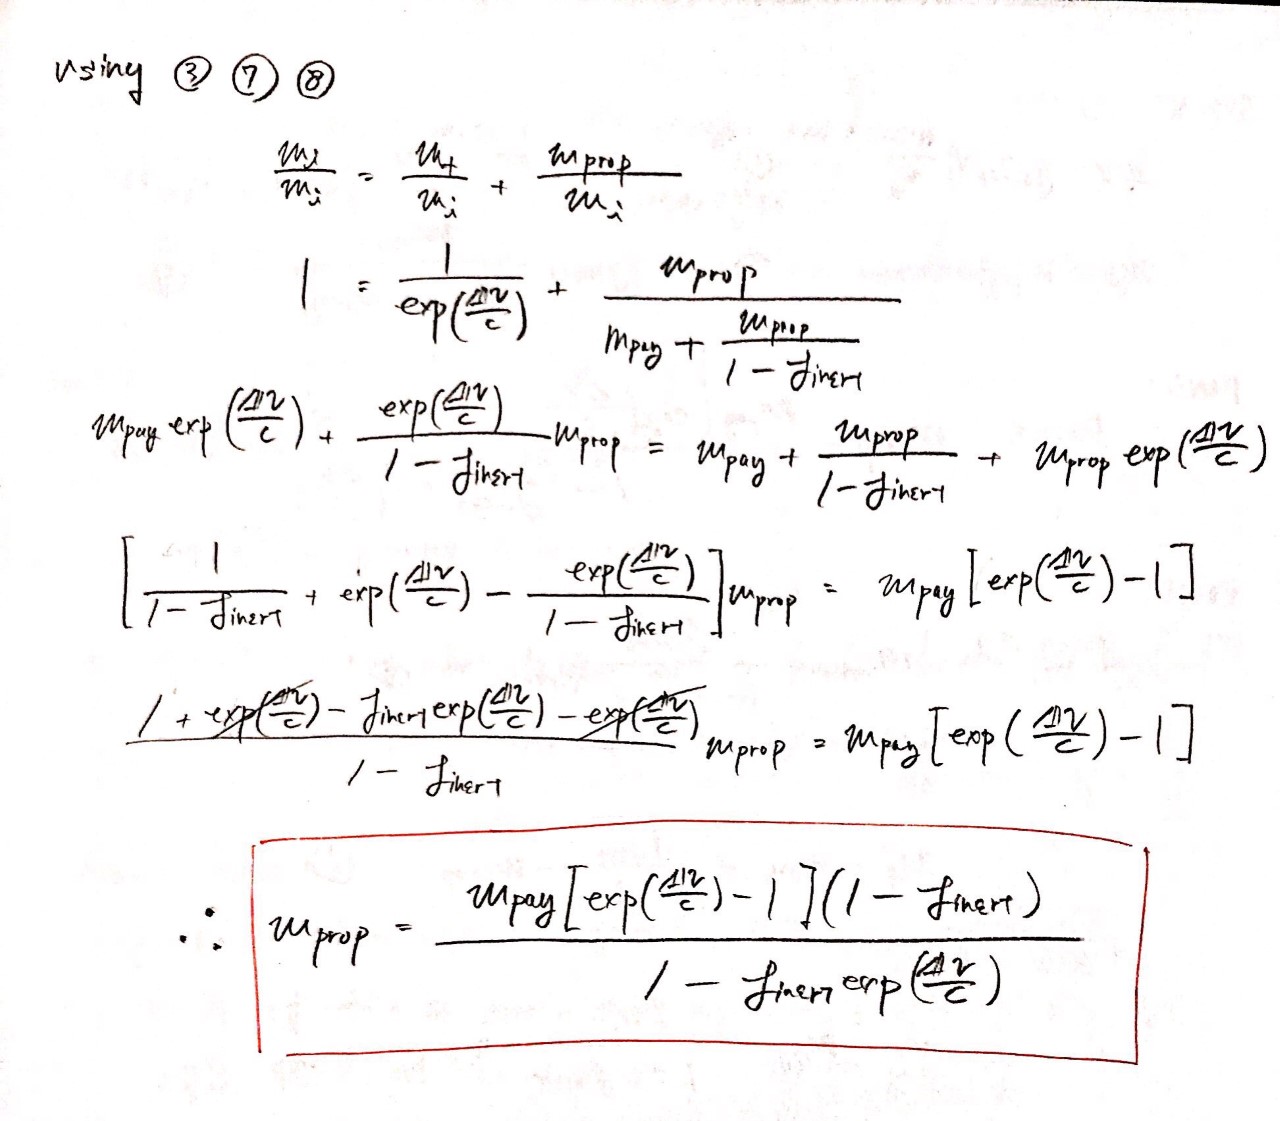 using ③ ⑦ ⑧
m_i/m_i = m_f/m_i + m_prop/m_i
1 = 1/exp(Δv/c) + m_prop/(m_pay + m_prop/(1 - f_inert))
m_pay exp(Δv/c) + exp(Δv/c)/(1 - f_inert) m_prop = m_pay + m_prop/(1 - f_inert) + m_prop exp(Δv/c)
[1/(1 - f_inert) + exp(Δv/c) - exp(Δv/c)/(1 - f_inert)] m_prop = m_pay [exp(Δv/c) - 1]
(1 + exp(Δv/c) - f_inert exp(Δv/c) - exp(Δv/c))/(1 - f_inert) m_prop = m_pay [exp(Δv/c) - 1]
∴ m_prop = m_pay [exp(Δv/c) - 1](1 - f_inert)/(1 - f_inert exp(Δv/c))